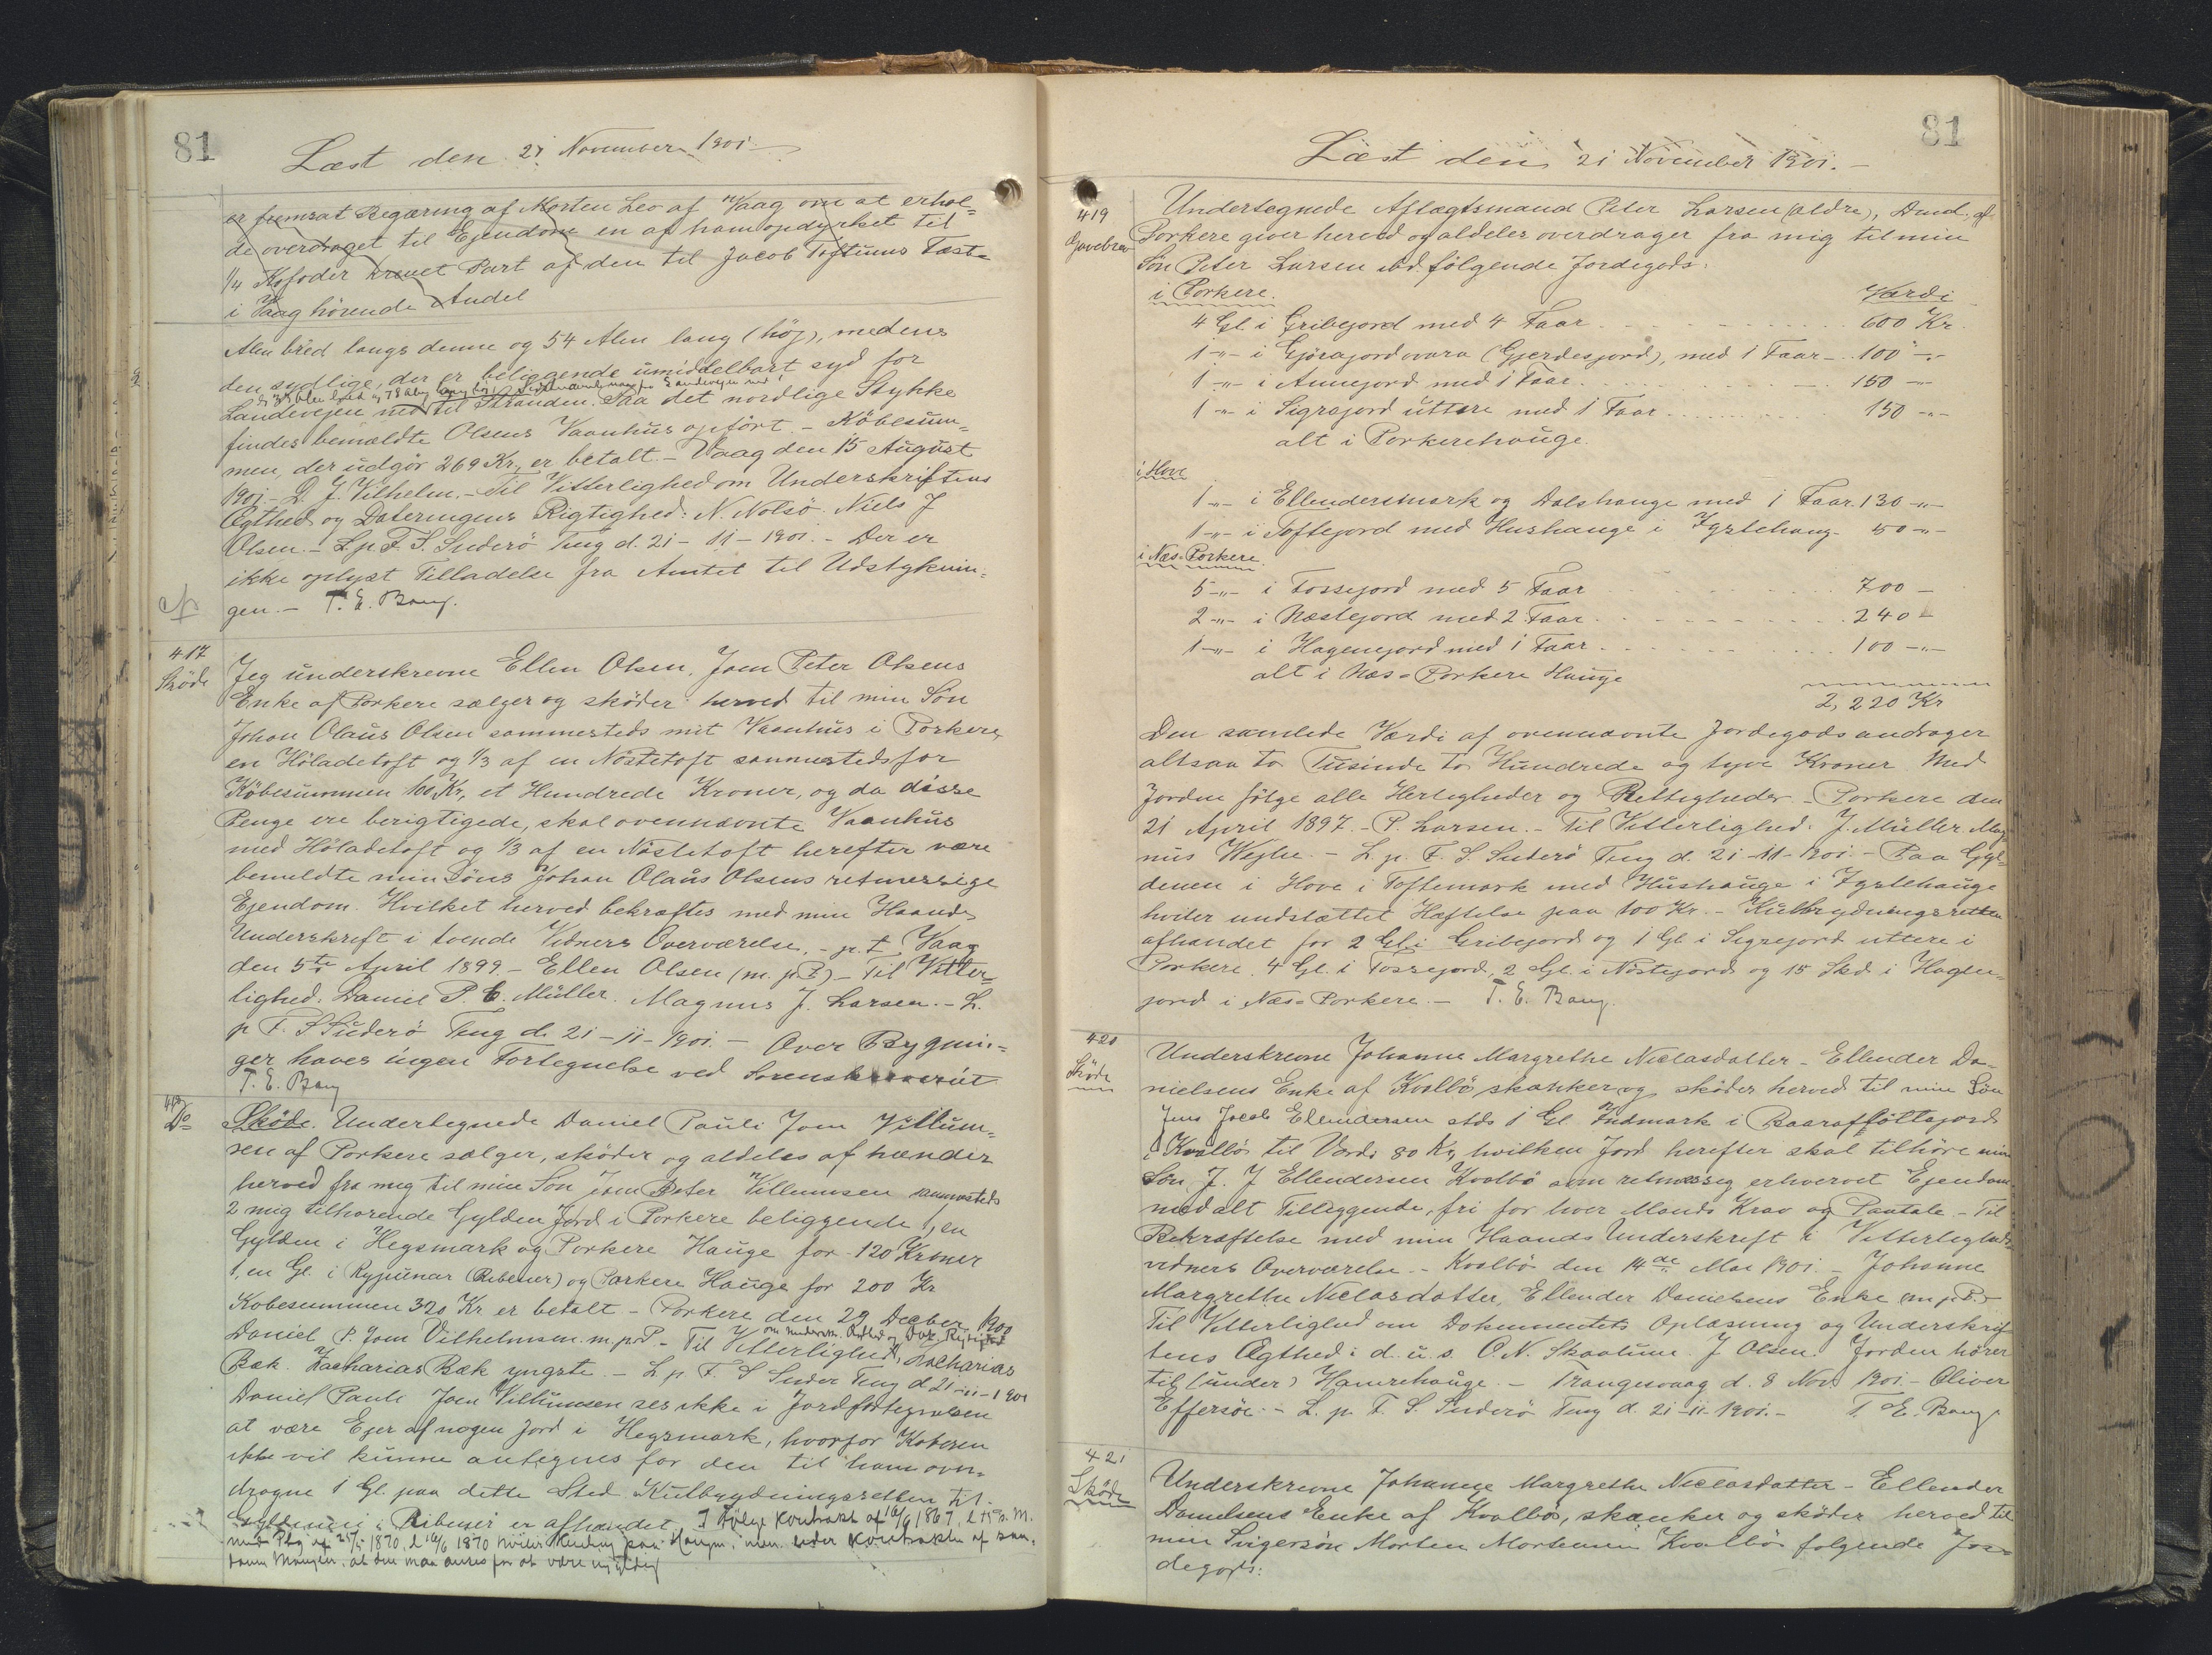 81
Læst den 21 November 1901
er fremsat Begæring af Morten Leo af Vaag om at erhol=
de overdraget til Ejendom en af ham opdyrket til
1/4 Kofoder krevet Part af den til Jacob Toftums Fæst=
i Vaag hörende Andel
Alen bred langs denne og 54 Alen lang (höj), medens
den sydlige, der er beliggende umiddelbart syd for
Landevejen ned til Stranden. Paa det nordlige Stykke
findes bemældte Olsens Vaanhus opfört. - Köbesum=
men, der udgör 269 Kr, er betalt. - Vaag den 15 August
1901. - D. J. Vilhelm. - Til Vitterlighed om Underskriftens
Ægthed og Dateringens Rigtighed: N. Nolsö. Niels J
Olsen. - L. p. F. S. Suderö Ting d. 21 - 11 - 1901. - Der er
ikke oplyst Tilladelse fra Amtet til Udstyknin=
gen. - T. E. Bang.
417
Sköde
Jeg underskrevne Ellen Olsen, Joen Peter Olsens
Enke af Porkere sælger og sköder herved til min Sön
Johan Olaus Olsen sammesteds mit Vaanhus i Porkere,
en Höladetoft og 1/3 af en Nöstetoft sammesteds for
Köbesummen 100 Kr, et Hundrede Kroner, og da disse
Penge ere berigtigede, skal ovennævnte Vaanhus
med Höladetoft og 1/3 af en Nöstetoft herefter være
bemeldte min Söns Johan Olaus Olsens retmæssige
Ejendom. Hvilket herved bekræftes med min Haands
Underskrift i tvende Vidners Overværelse. - p. t. Vaag
den 5te April 1899. - Ellen Olsen (m. p. P.) - Til Vitter=
lighed: Daniel P. C. Müller. Magnus J. Larsen. - L.
p. F. S Suderö Ting d. 21 - 11 - 1901. - Over Bygnin=
ger haves ingen Fortegnelse ved Sorenskriveriet
T. E. Bang
418
Do
Sköde. Undertegnede Daniel Pauli Joen Villum=
sen af Porkere sælger, sköder og aldeles af hænder
herved fra mig til min Sön Joen Peter Villumsen sammesteds
2 mig tilhørende Gylden Jord i Porkere beliggende 1, en
Gylden i Hegsmark og Porkere Hauge for 120 Kroner
1, en Gl. i Rypunar (Ribener) og Porkere Hauge for 200 Kr
Kobesummen 320 Kr er betalt - Porkere den 29 Decber 1900
Daniel P. Joen Vilhelmsen. m. p. P - Til Vitterlighed, Zacharias
Bæk. Zacharias Bæk yngste. - L. p. F. S Suder Ting d 21 - 11 - 1901
Daniel Pauli Joen Villumsen ses ikke i Jordfortegnelsen
at være Ejer af nogen Jord i Hegsmark, hvorfor Köberen
ikke vil kunne antegnes for den til ham over=
dragne 1 Gl. paa dette Sted. Kulbrydningsretten til
Gyldenen i Ribener er afhændet. I Følge Kontrakt af
81
Læst den 21 November 1901. -
419
Gavebrev
Undertegnede Aflægtsmand Peter Larsen (ældre), Dmd. af
Porkere giver herved og aldeles overdrager fra mig til min
Sön Peter Larsen ibd. følgende Jordegods.
i Porkere. Værdi
4 Gl. i Gribejord med 4 Faar 600 Kr.
1 -"- i Gjörajordvara (Gjerdesjord), med 1 Faar 100 -"-
1 -"- i Annejord med 1 Faar 150 -"-
1 -"- i Sigrajord uttere med 1 Faar 150 -"-
alt i Porkerehauge.
i Hove
1 -"- i Ellendersmark og Dalshauge med 1 Faar. 130 -"-
1 -"- i Toftejord med Hushauge i Tystehaug 50 -"-
i Næs-Porkere
5 -"- i Fossejord med 5 Faar 700 -
2 -"- i Næstejord med 2 Faar 240 -
1 -"- i Hagenejord med 1 Faar 100 -"-
alt i Næs=Porkere Hauge
2,220 Kr
Den samlede Værdi af ovennævnte Jordegods andrager
altsaa to Tusinde to Hundrede og tyve Kroner. Med
Jorden følge alle Herligheder og Rettigheder. - Porkere den
21 April 1897. - P. Larsen. - Til Vitterlighed: J. Müller. Mag
nus Weyhe. - L. p. F. S. Suderö Ting d. 21 - 11 - 1901. - Paa Gyl=
denen i Hove i Toftemark med Hushauge i Tystehauge
hviler undstættet Hæftelse paa 100 Kr. - Kulbrydningsretten
afhændet for 2 Gl. i Gribejord og 1 Gl. i Sigrejord uttere i
Porkere, 4 Gl. i Fossejord, 2 Gl. i Nöstejord og 15 Skd. i Hagen=
jord i Næs=Porkere. - T. E. Bang.
420
Sköde
Underskrevne Johanne Margrethe Niclasdatter - Ellender Da=
nielsens Enke af Kvalbö skænker og sköder herved til min Sön
Jens Jacob Ellendersen stds 1 Gl. Indmark i Baaraflöttajord
i Kvalbö til Værdi 80 Kr, hvilken Jord herefter skal tilhöre min
Sön J. J Ellendersen Kvalbö som retmæssig erhvervet Ejendom
med alt Tilliggende, fri for hver Mands Krav og Paatale. - Til
Bekræftelse med min Haands Underskrift i Vitterligheds
vidners Overværelse. - Kvalbö den 14de Mai 1901. - Johanne
Margrethe Niclasdatter, Ellender Danielsens Enke (m. p. P.) -
Til Vitterlighed om Dokumentets Oplæsning og Underskrif
tens Ægthed: d. u. s. O. N. Skaalum. J Olsen. Jorden hörer
til (under) Hamrehauge. - Trangesvaag d. 8 Nov. 1901. - Oliver
Effersöe. - L. p. F. S. Suderö Ting d. 21 - 11 - 1901. - T. E. Bang.
421
Sköde
Underskrevne Johanne Margrethe Niclasdatter - Ellender
Danielsens Enke af Kvalbö, skænker og sköder herved til
min Svigersön Morten Mortensen Kvalbö følgende Jor=
degods: